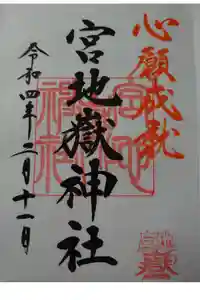 心願成就
宮地嶽神社
令和四年二月十一日